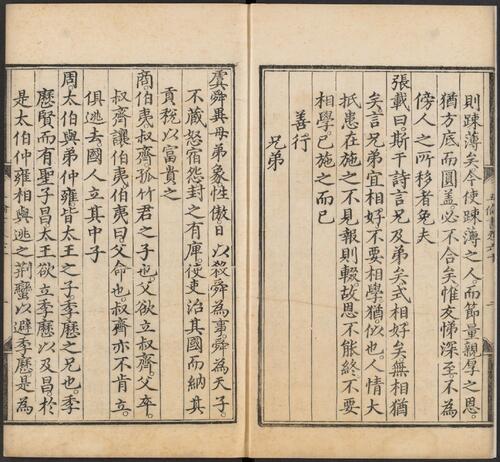 則踈薄矣今使踈薄之人。而節量親厚之恩。
猶方底而圓盖。必不合矣。惟友悌深至。不為
傍人之所移者免夫
張載曰。斯干詩言兄及弟矣。式相好矣。無相猶
矣。言兄弟宜相好。不要相學。猶似也。人情大
抵患在施之不見報則輟。故恩不能終。不要
相學。己施之而已
善行
兄弟
虞舜異母弟象性傲。日以殺舜為事。舜為天子。
不藏怒宿怨。封之有庳。使吏治其國而納其
貢稅。以富貴之
商伯夷叔齊。孤竹君之子也。父欲立叔齊。父卒。
叔齊讓伯夷。伯夷曰。父命也。叔齊亦不肯立。
俱逃去。國人立其中子
周太伯與弟仲雍。皆太王之子。季歷之兄也。季
歷賢而有聖子昌。太王欲立季歷以及昌。於
是太伯仲雍相與逃之荊蠻。以避季歷。是為